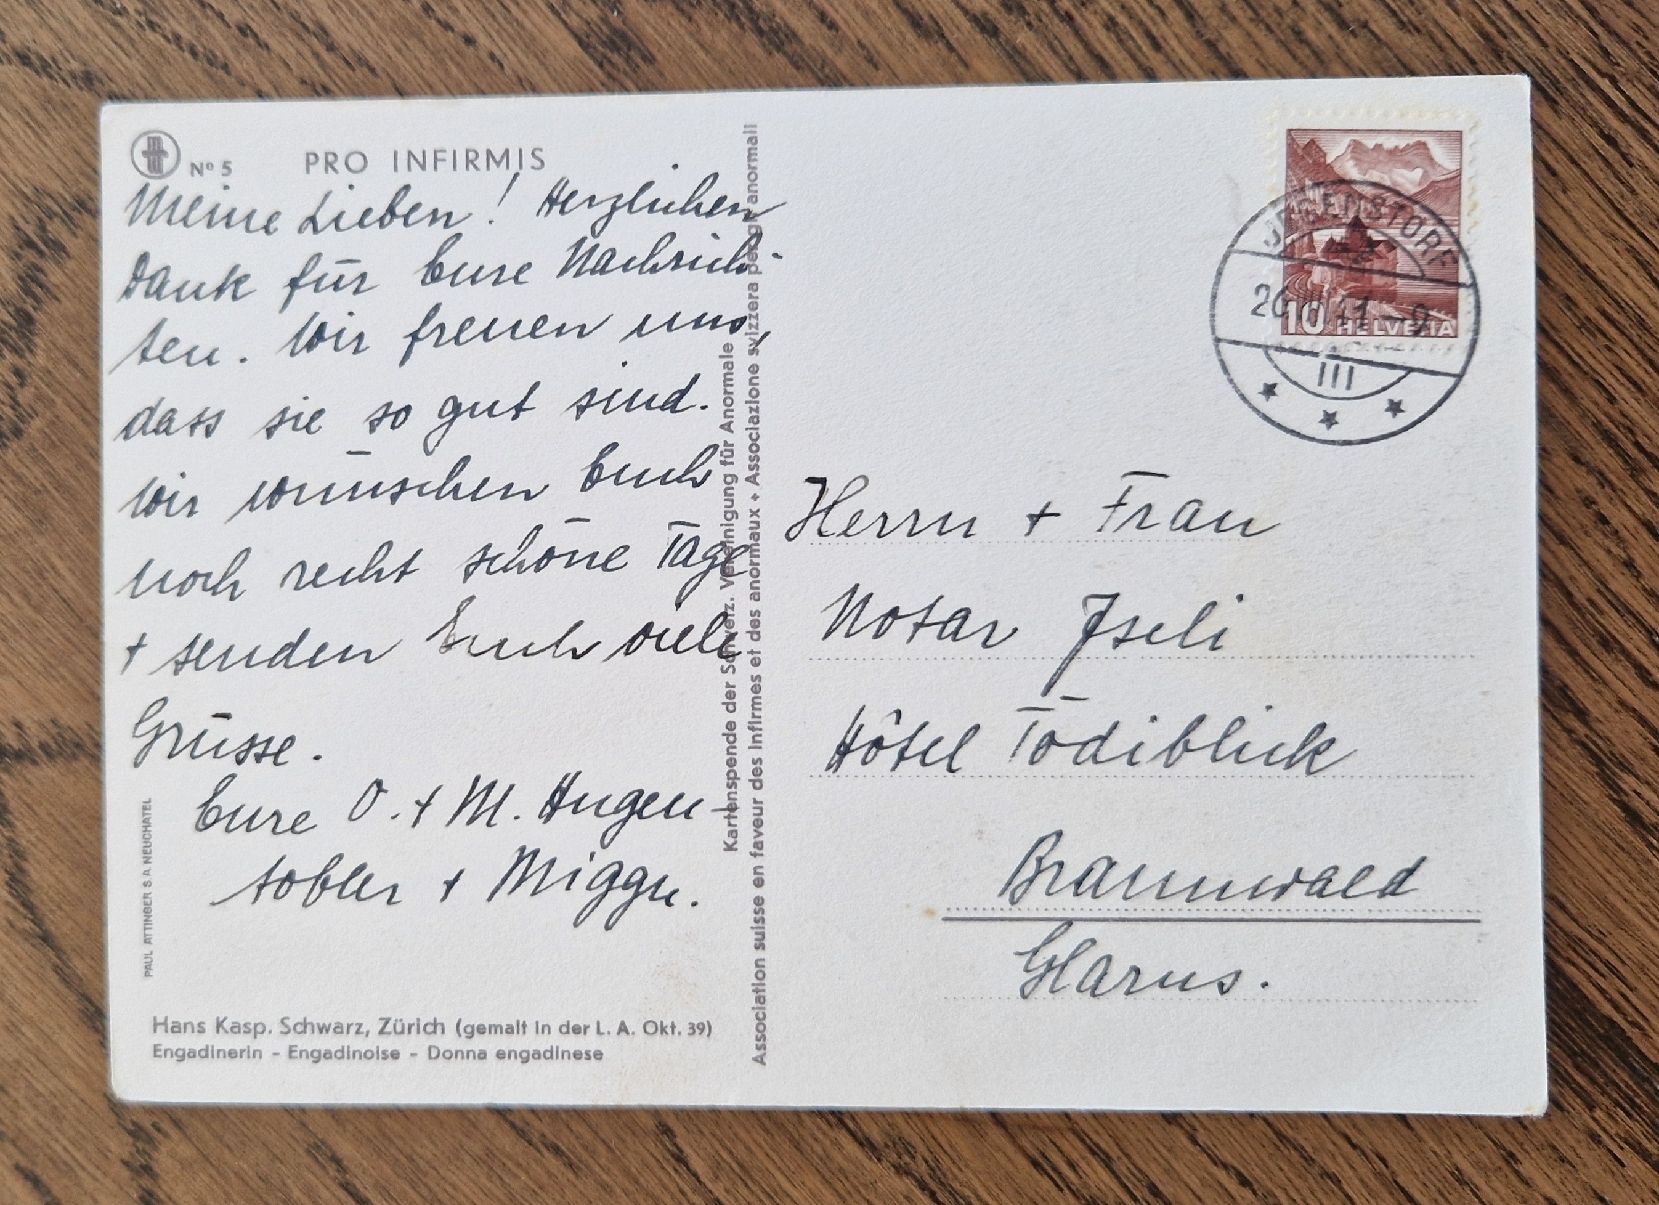 Nº 5
PRO INFIRMIS
Meine Lieben! Herzlichen
Dank für Eure Nachrich-
ten. Wir freuen uns,
dass sie so gut sind.
Wir wünschen Euch
noch recht schöne Tage
+ senden Euch viele
Grüsse.
Eure O. + M. Hugen-
tobler + Miggu.
PAUL ATTINGER S.A. NEUCHATEL
Hans Kasp. Schwarz, Zürich (gemalt in der L. A. Okt. 39)
Engadinerin - Engadinoise - Donna engadinese
Kartenspende der Schweiz. Vereinigung für Anormale
Association suisse en faveur des infirmes et des anormaux + Associazione svizzera per gli anormali
JEGENSTORF
26. 41 - 9
III
10 HELVETIA
Herrn + Frau
Notar Jseli
Hôtel Tödiblick
Braunwald
Glarus.